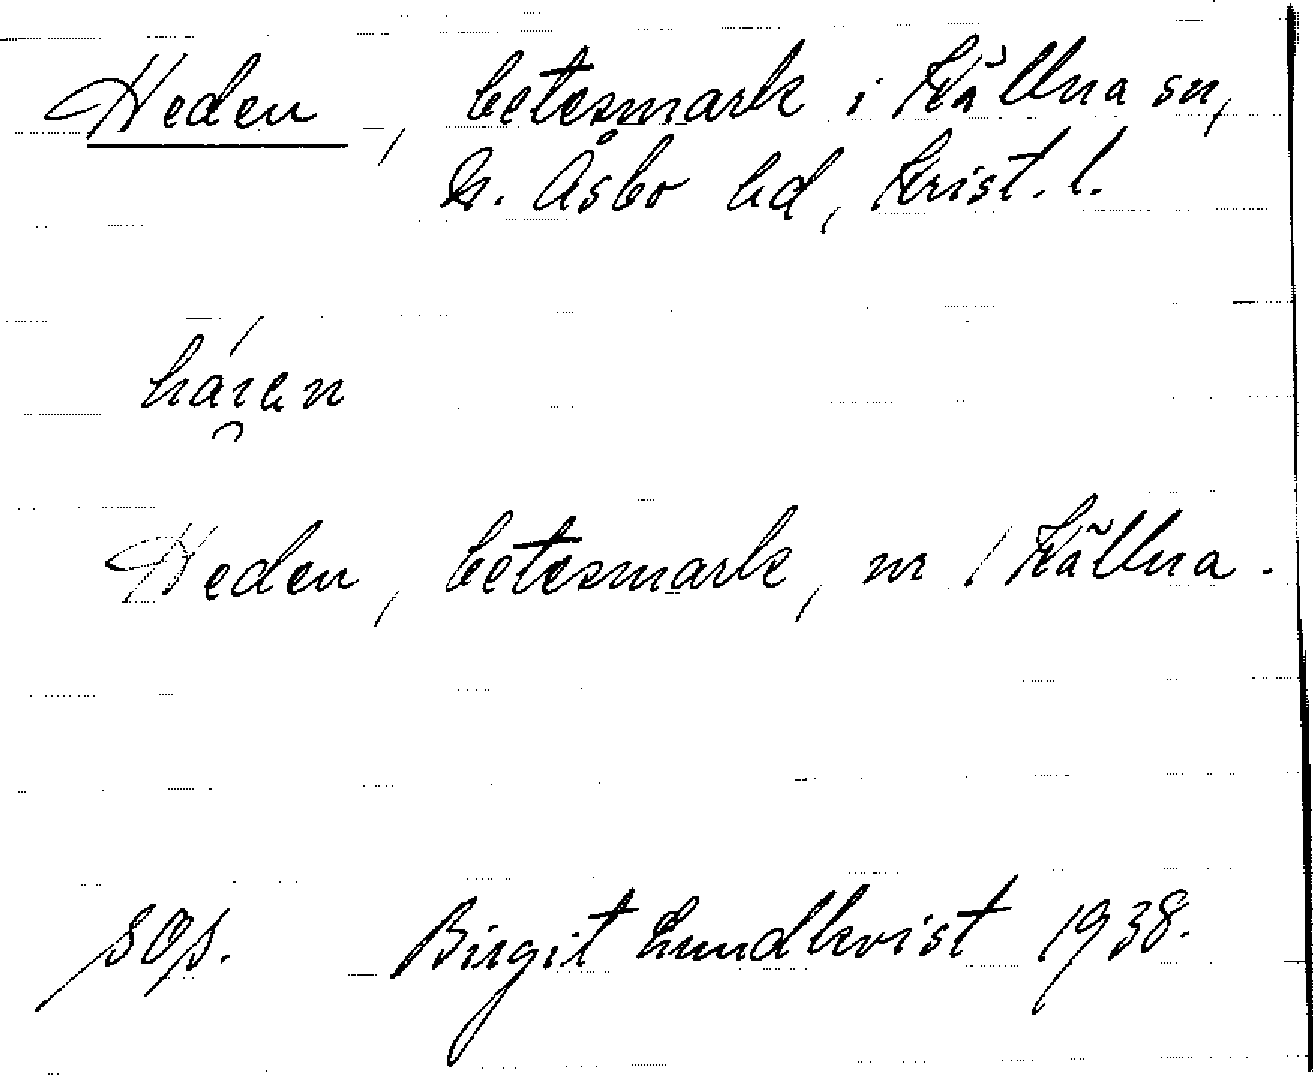 Heden, betesmark i Källna sn,
N. Åsbo hd, Krist. l.
Heden, betesmark, nr 1 Källna.
sops. Birgit Lundkvist 1938.